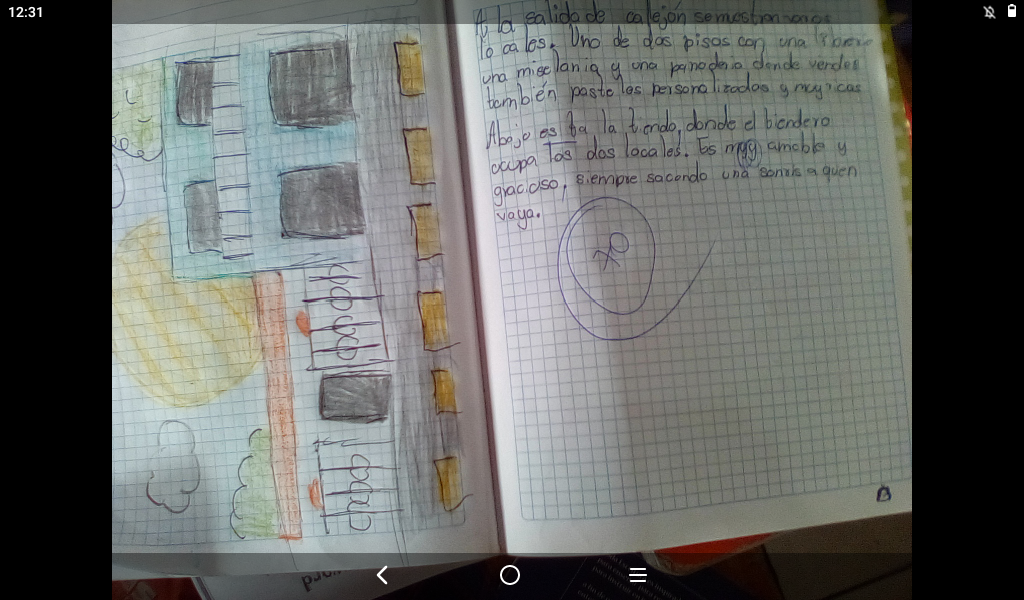 12:31
A la salida de calejón se muestran varios
locales. Uno de dos pisos con una
una misclania y una panaderia donde vendes
también pasteles personalizados y muy ricas
Abajo es ta la tienda, donde el tiendero
ocupa los dos locales. Es muy amable y
gracioso, siempre sacando una sonris a quen
vaya.